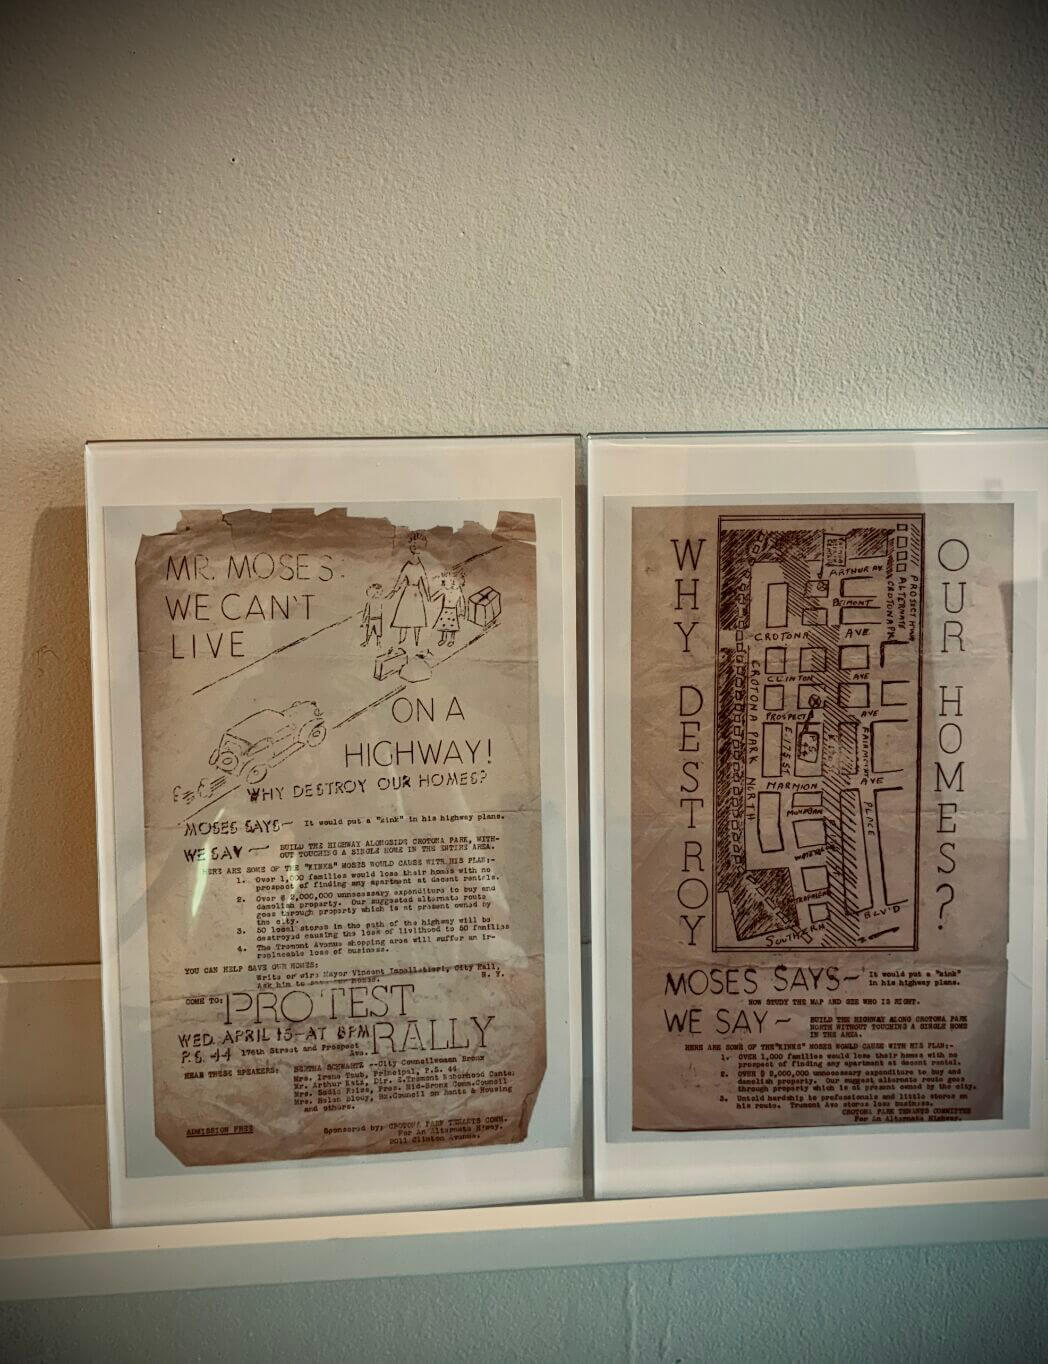 MR. MOSES:
WE CAN'T
LIVE
ON A
HIGHWAY!
WHY DESTROY OUR HOMES?
MOSES SAYS— It would put a "kink" in his highway plans.
WE SAY — BUILD THE HIGHWAY ALONGSIDE CROTONA PARK, WITH-
OUT TOUCHING A SINGLE HOME IN THE ENTIRE AREA.
HERE ARE SOME OF THE "KINKS" MOSES WOULD CAUSE WITH HIS PLAN;-
1. Over 1,000 families would lose their homes with no
prospect of finding any apartment at decent rentals.
2. Over $ 2,000,000 unnecessary expenditure to buy and
demolish property. Our suggested alternate route
goes through property which is at present owned by
the city.
3. 50 local stores in the path of the highway will be
destroyed causing the loss of livlihood to 50 families
4. The Tremont Avenue shopping area will suffer an ir-
replaceable loss of business.
YOU CAN HELP SAVE OUR HOMES:
Write or wire Mayor Vincent Impellitteri, City Hall,
N. Y.
Ask him to save our homes.
COME TO: PROTEST
RALLY
WED. APRIL 15—AT 8PM
P.S. 44 176th Street and Prospect
Ave.
HEAR THESE SPEAKERS: BERTHA SCHWARTZ --City Councilwoman Bronx
Mrs. Irene Taub, Principal, P.S. 44
Mr. Arthur Katz, Dir. E.Tremont Neborhood Center
Mrs. Sadie Feiss, Pres. Mid-Bronx Comm.Council
Mrs. Helen Blouy, Bx.Council on Rents & Housing
and others.
ADMISSION FREE
Sponsored by: CROTONA PARK TENANTS COMM.
For An Alternate H'way.
Clinton Avenue.
WHY DESTROY
OUR HOMES?
ARTHUR AV
BELMONT
CROTONA AVE
CLINTON AVE
PROSPECT AVE
MARMION AVE
MOHEGAN
SOUTHERN BLV'D
CROTONA PARK NORTH
E. 175 ST
P.S. 44
FAIRMOUNT
PLACE
ALTERNATE
CROTONA PK
MOSES SAYS— It would put a "kink"
in his highway plans.
NOW STUDY THE MAP AND SEE WHO IS RIGHT.
WE SAY — BUILD THE HIGHWAY ALONG CROTONA PARK
NORTH WITHOUT TOUCHING A SINGLE HOME
IN THE AREA.
HERE ARE SOME OF THE"KINKS" MOSES WOULD CAUSE WITH HIS PLAN;-
1. OVER 1,000 families would lose their homes with no
prospect of finding any apartment at decent rental.
2. OVER $ 2,000,000 unnecessary expenditure to buy and
demolish property. Our suggest alternate route goes
through property which is at present owned by the city.
3. Untold hardship to professionals and little stores on
his route. Tremont Ave stores lose business.
CROTONA PARK TENANTS COMMITTEE
For An Alternate Highway.